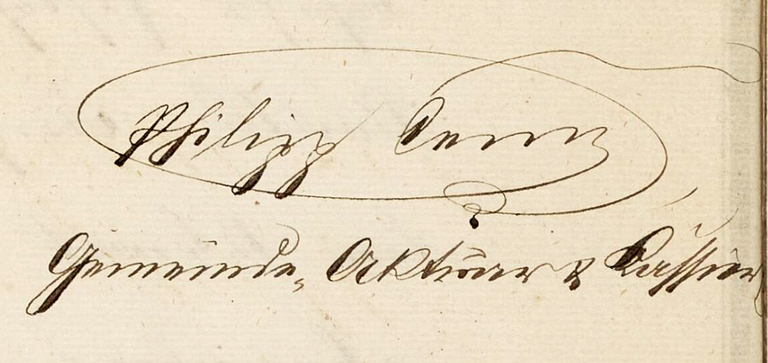 Philipp
Gemeinde„ Aktuar & Kassier